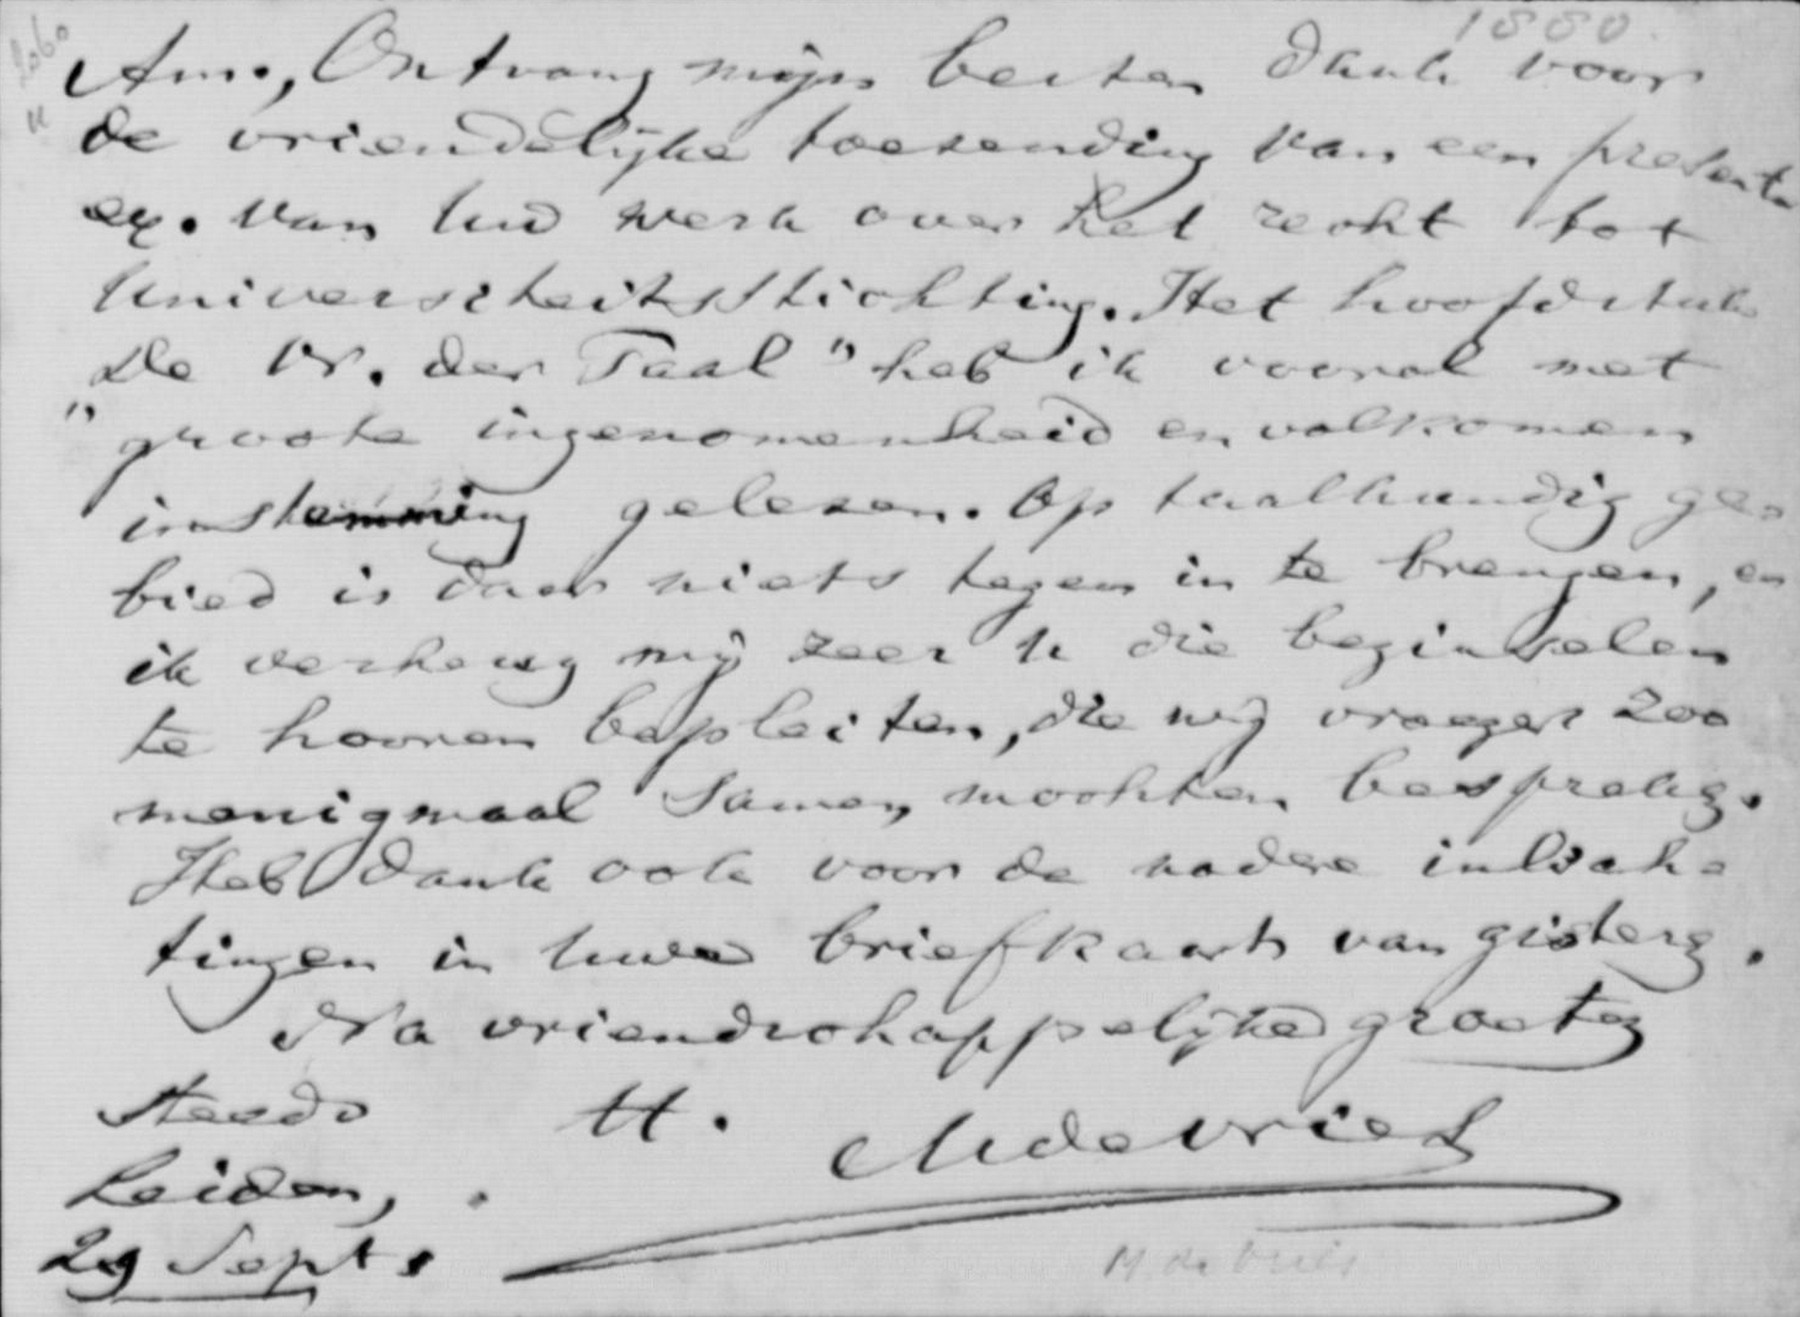 1880.
Am., Ontvang mijn besten dank voor
de vriendelijke toezending van een present-
ex. van Uw werk over het recht tot
Universiteitsstichting. Het hoofdstuk
De Vr. der Taal" heb ik vooral met
"groote ingenomenheid en volkomen
instemming gelezen. Op taalkundig ge-
bied is daar niets tegen in te brengen, en
ik verheug mij zeer U die beginselen
te hooren bepleiten, die wij vroeger zoo
menigmaal samen mochten bespreken.
Heb dank ook voor de nadere inlich-
tingen in Uwe briefkaart van gisteren.
Na vriendschappelijke groeten
Steeds tt. MdeVries
Leiden,
29 Sept.
M. de Vries